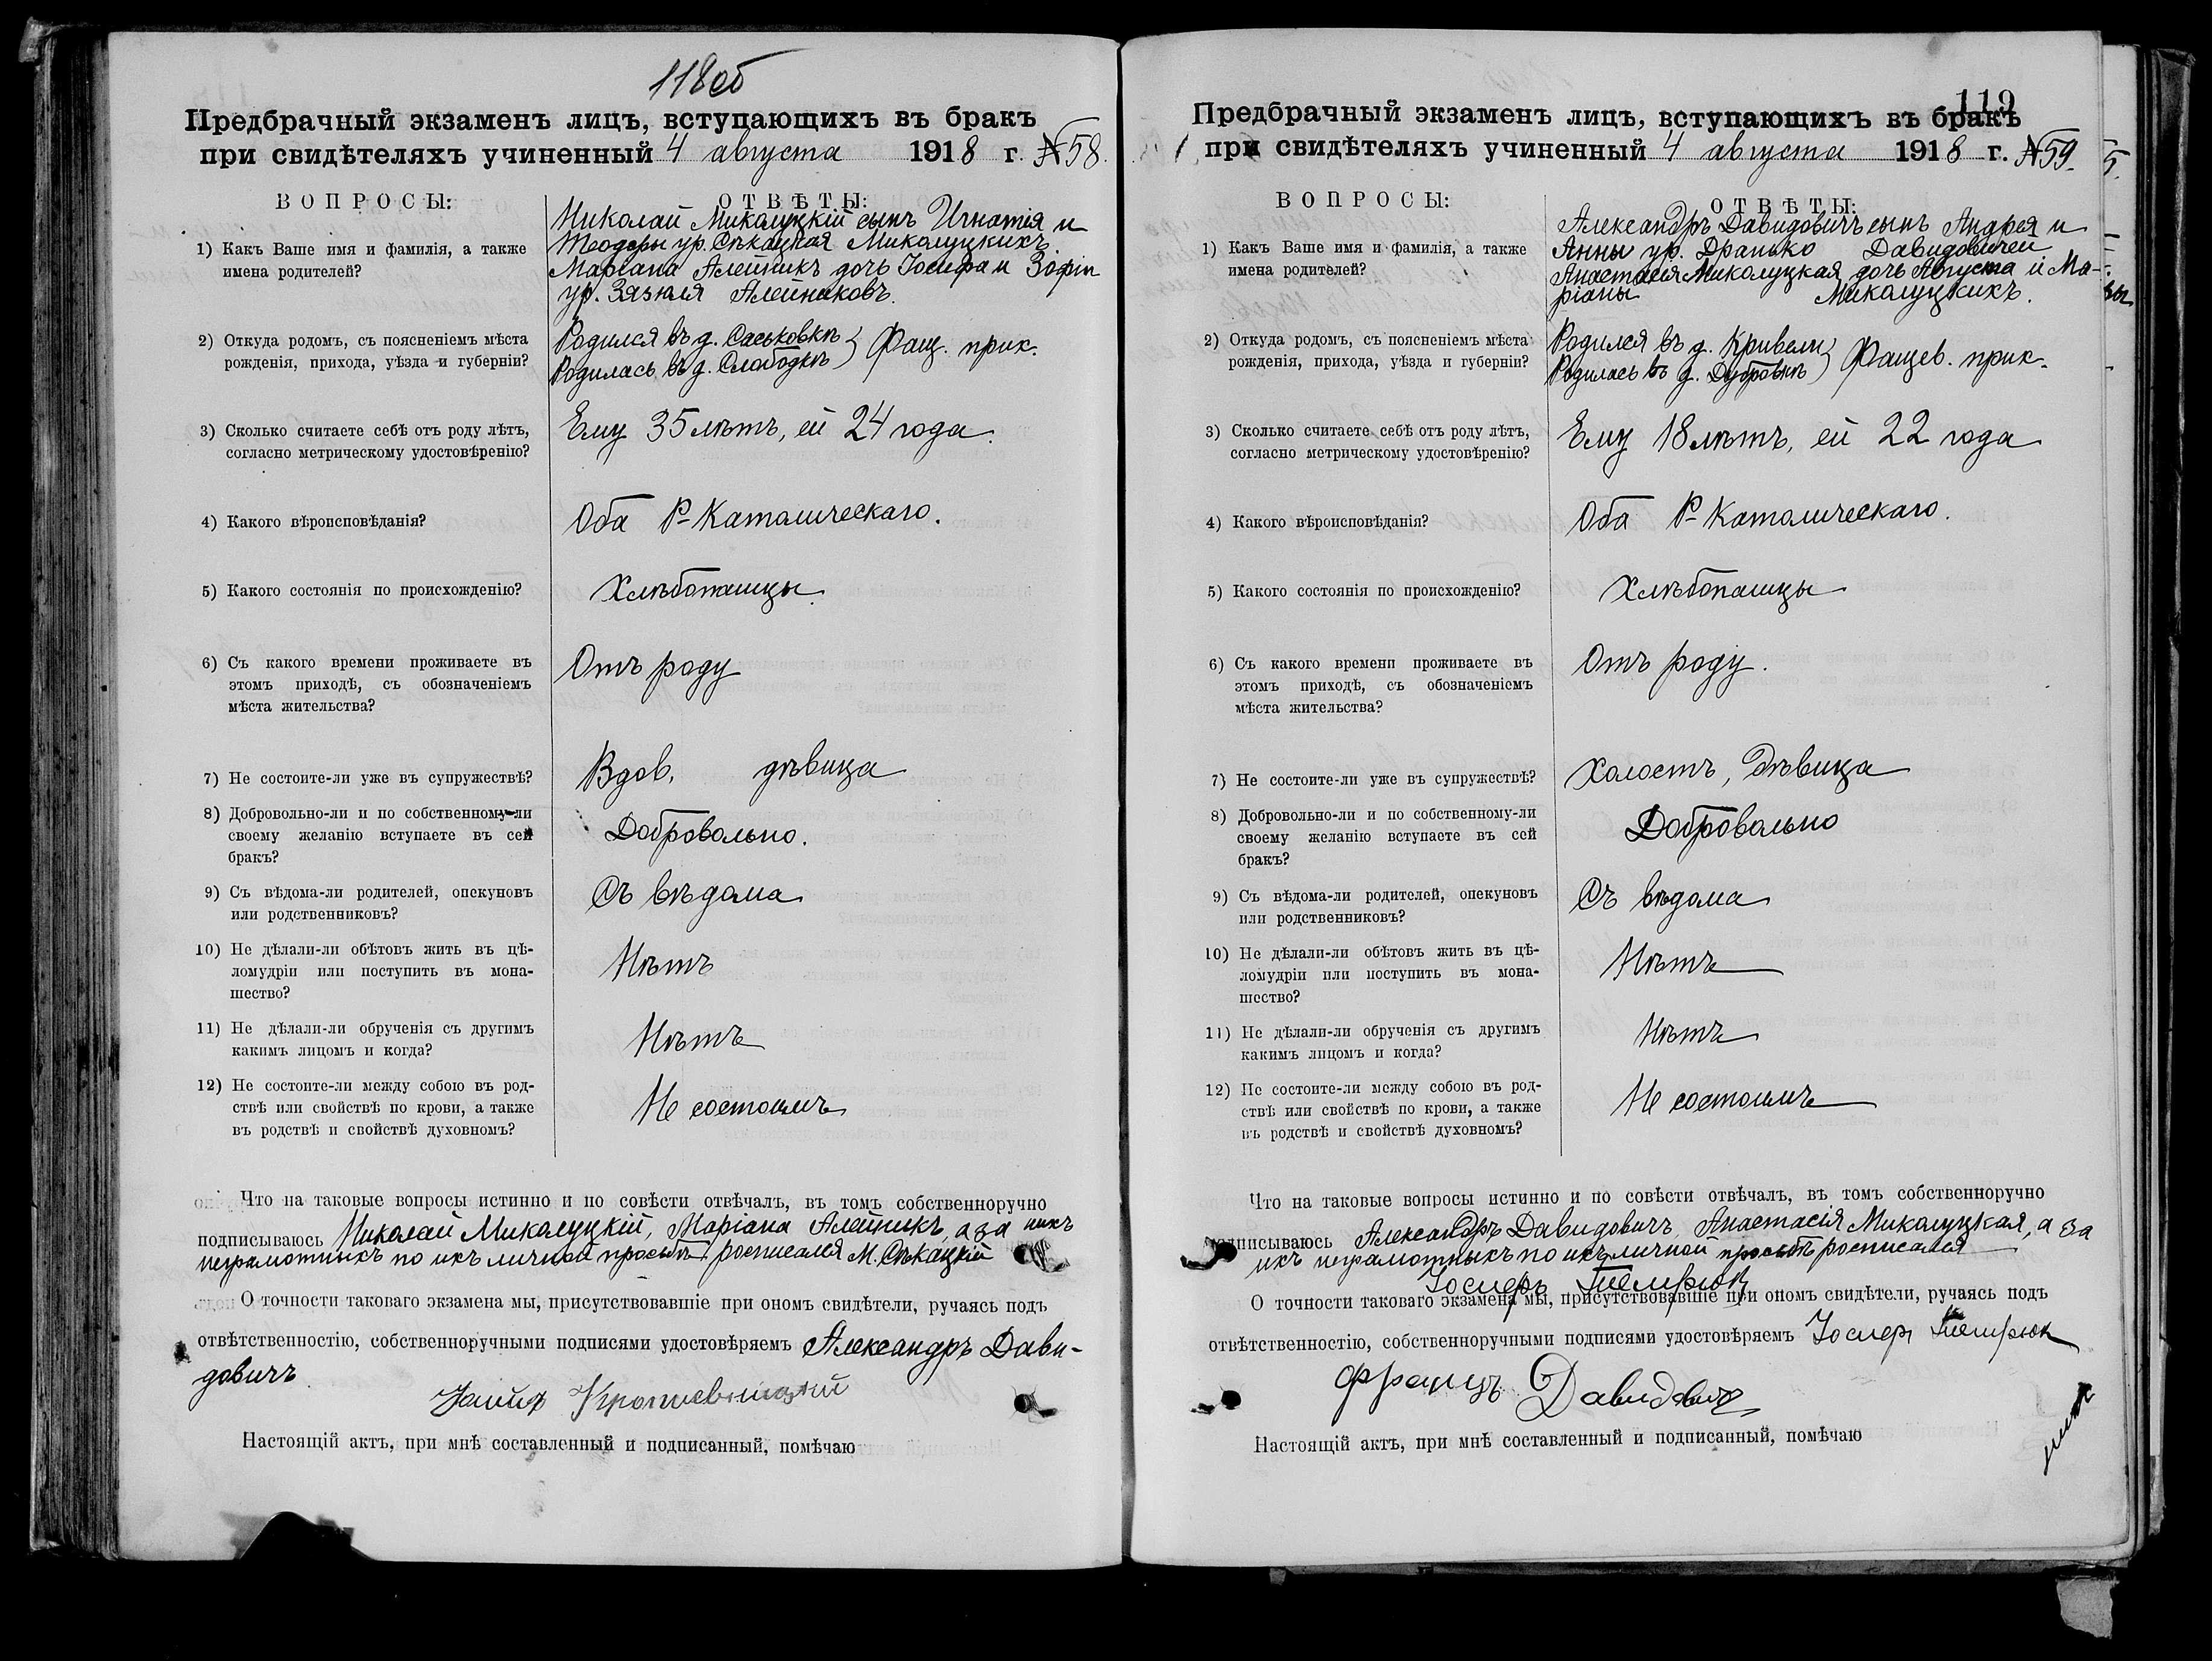 118об
Предбрачный экзаменъ лицъ, вступающихъ въ бракъ
при свидѣтеляхъ учиненный 4 августа 1918 г. №58.
ВОПРОСЫ: ОТВѢТЫ:
1) Какъ Ваше имя и фамилія, а также
имена родителей?
Николай Миколуцкій сынъ Игнатія и
Теодоры ур. Сѣкацкая Миколуцкихъ.
Маріана Алейникъ дочь Іосифа и Зофіи
ур. Зязюля Алейниковъ.
2) Откуда родомъ, съ поясненіемъ мѣста
рожденія, прихода, уѣзда и губерніи?
Родился въ д. Саськовкѣ
Родилась въ д. Слободкѣ } Фащ. прих.
3) Сколько считаете себѣ отъ роду лѣтъ,
согласно метрическому удостовѣренію?
Ему 35 лѣтъ, ей 24 года.
4) Какого вѣроисповѣданія?
Оба Р-Католическаго.
5) Какого состоянія по происхожденію?
Хлѣбопашцы.
6) Съ какого времени проживаете въ
этомъ приходѣ, съ обозначеніемъ
мѣста жительства?
Отъ роду
7) Не состоите-ли уже въ супружествѣ?
Вдов, дѣвица
8) Добровольно-ли и по собственному-ли
своему желанію вступаете въ сей
бракъ?
Добровольно.
9) Съ вѣдома-ли родителей, опекуновъ
или родственниковъ?
Съ вѣдома
10) Не дѣлали-ли обѣтовъ жить въ цѣ-
ломудріи или поступить въ мона-
шество?
Нѣтъ
11) Не дѣлали-ли обрученія съ другимъ
какимъ лицомъ и когда?
Нѣтъ
12) Не состоите-ли между собою въ род-
ствѣ или свойствѣ по крови, а также
въ родствѣ и свойствѣ духовномъ?
Не состоимъ
Что на таковые вопросы истинно и по совѣсти отвѣчалъ, въ томъ собственноручно
подписываюсь Николай Миколуцкій, Маріана Алейникъ, а за нихъ
неграмотныхъ по ихъ личной просьбѣ росписался М. Сѣкацкій
О точности таковаго экзамена мы, присутствовавшіе при ономъ свидѣтели, ручаясь подъ
отвѣтственностію, собственноручными подписями удостовѣряемъ Александръ Дави-
довичъ
Настоящій актъ, при мнѣ составленный и подписанный, помѣчаю
119
Предбрачный экзаменъ лицъ, вступающихъ въ бракъ
при свидѣтеляхъ учиненный 4 августа 1918 г. №59.
ВОПРОСЫ: ОТВѢТЫ:
1) Какъ Ваше имя и фамилія, а также
имена родителей?
Александръ Давидовичъ сынъ Андрея и
Анны ур. Дранько Давидовичей
Анастасія Миколуцкая дочь Августа и Ма-
ріаны Миколуцкихъ.
2) Откуда родомъ, съ поясненіемъ мѣста
рожденія, прихода, уѣзда и губерніи?
Родился въ д. Кривели
Родилась въ д. Дубровкѣ } Фащев. прих.
3) Сколько считаете себѣ отъ роду лѣтъ,
согласно метрическому удостовѣренію?
Ему 18 лѣтъ, ей 22 года
4) Какого вѣроисповѣданія?
Оба Р-Католическаго.
5) Какого состоянія по происхожденію?
Хлѣбопашцы
6) Съ какого времени проживаете въ
этомъ приходѣ, съ обозначеніемъ
мѣста жительства?
Отъ роду.
7) Не состоите-ли уже въ супружествѣ?
Холостъ, Дѣвица
8) Добровольно-ли и по собственному-ли
своему желанію вступаете въ сей
бракъ?
Добровольно
9) Съ вѣдома-ли родителей, опекуновъ
или родственниковъ?
Съ вѣдома
10) Не дѣлали-ли обѣтовъ жить въ цѣ-
ломудріи или поступить въ мона-
шество?
Нѣтъ
11) Не дѣлали-ли обрученія съ другимъ
какимъ лицомъ и когда?
Нѣтъ
12) Не состоите-ли между собою въ род-
ствѣ или свойствѣ по крови, а также
въ родствѣ и свойствѣ духовномъ?
Не состоимъ
Что на таковые вопросы истинно и по совѣсти отвѣчалъ, въ томъ собственноручно
подписываюсь Александръ Давидовичъ, Анастасія Миколуцкая, а за
ихъ неграмотныхъ по ихъ личной просьбѣ росписался
Іосифъ
О точности таковаго экзамена мы, присутствовавшіе при ономъ свидѣтели, ручаясь подъ
отвѣтственностію, собственноручными подписями удостовѣряемъ Іосиф
Францъ Давидович
Настоящій актъ, при мнѣ составленный и подписанный, помѣчаю